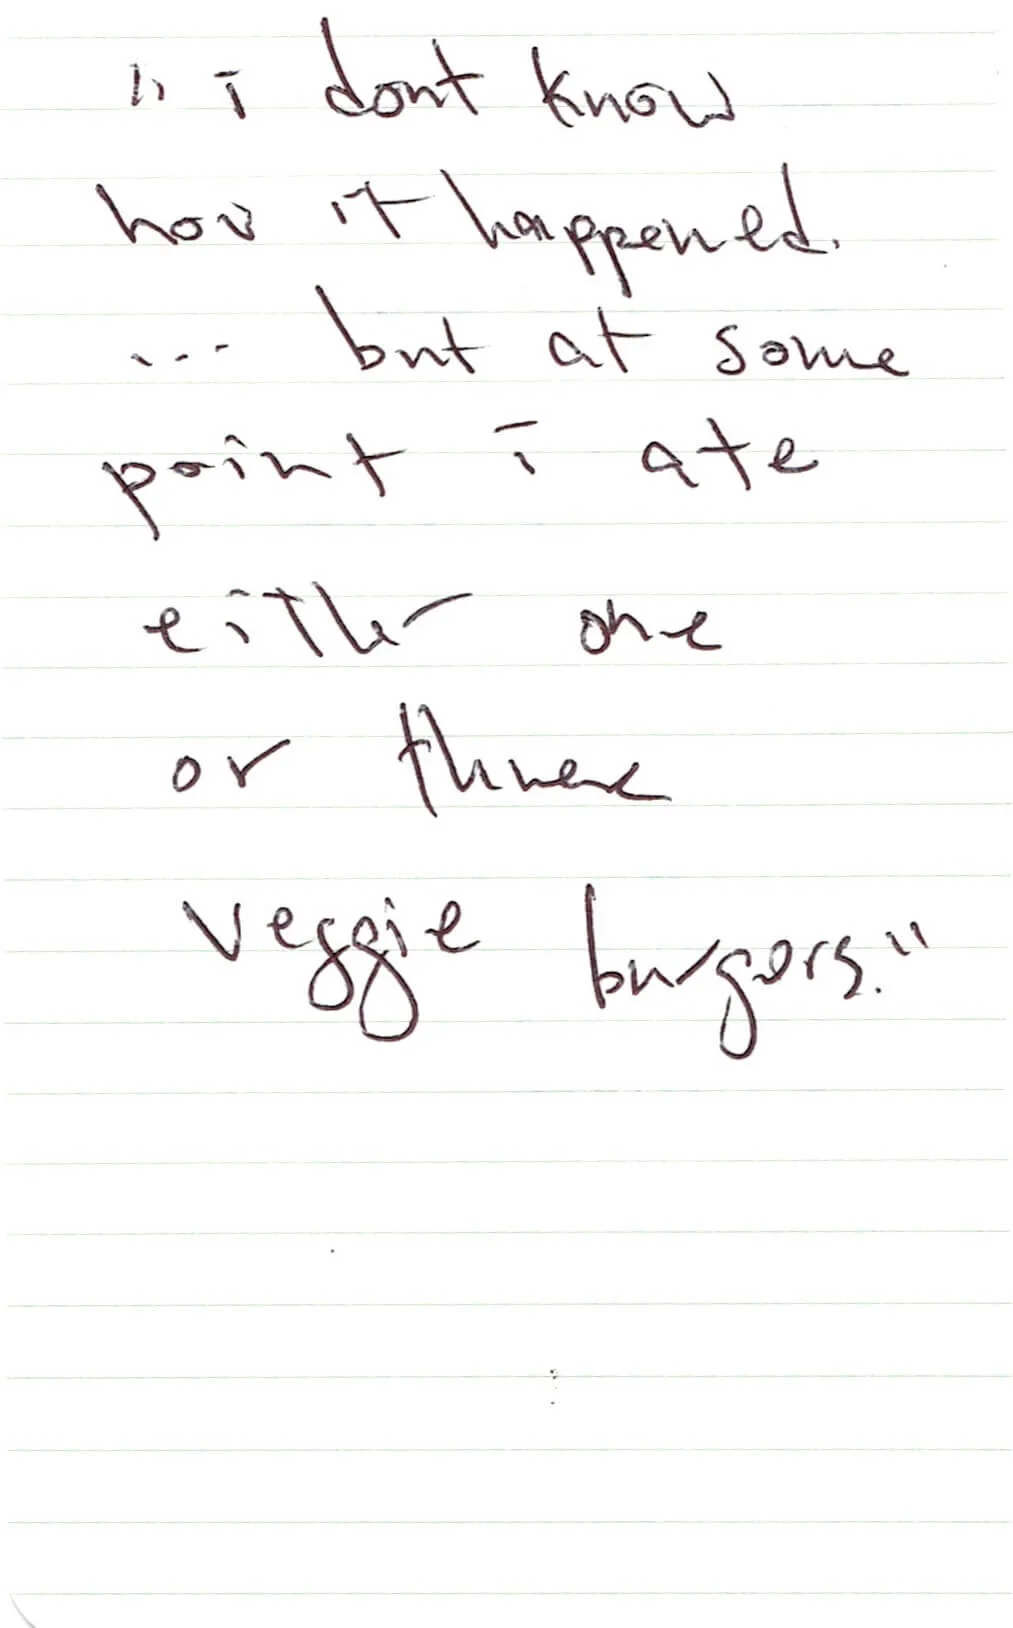 "i dont know
how it happened.
... but at some
point i ate
either one
or three
veggie burgers."